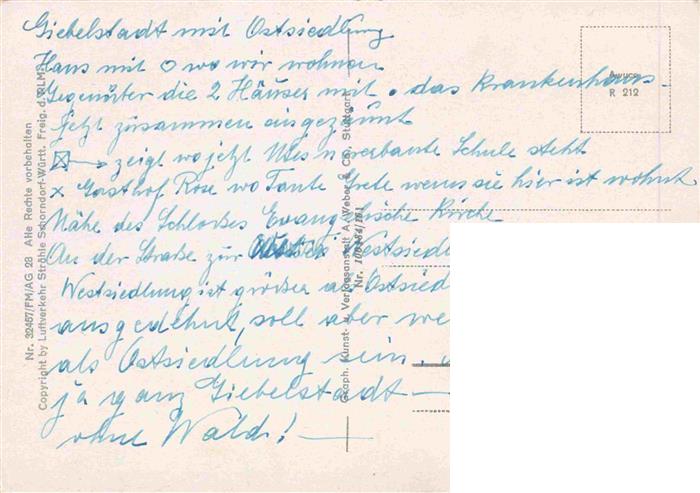 Giebelstadt mit Ostsiedlung
Haus mit ♡ wo wir wohnen
Gegenüber die 2 Häuser mit • das Krankenhaus-
Jetzt zusammen eingezäunt
→ zeigt wo jetzt neuerbaute Schule steht
x Gasthof Rose wo Tante Grete wenn sie hier ist wohnt
Nähe des Schlosses Evangelische Kirche
An der Straße zur Westsiedl
Westsiedlung ist größer als Ostsied
ausgedehnt, soll aber we
als Ostsiedlung sein,
ja ganz Giebelstadt —
ohne Wald! —
Nr. 32467/FM/AG 28 Alle Rechte vorbehalten
Copyright by Luftverkehr Strähle Schorndorf-Württ. Freig. d. RLM.
Graph. Kunst- u. Verlagsanstalt A. Weber & Co., Stuttgart
Nr.
R 212